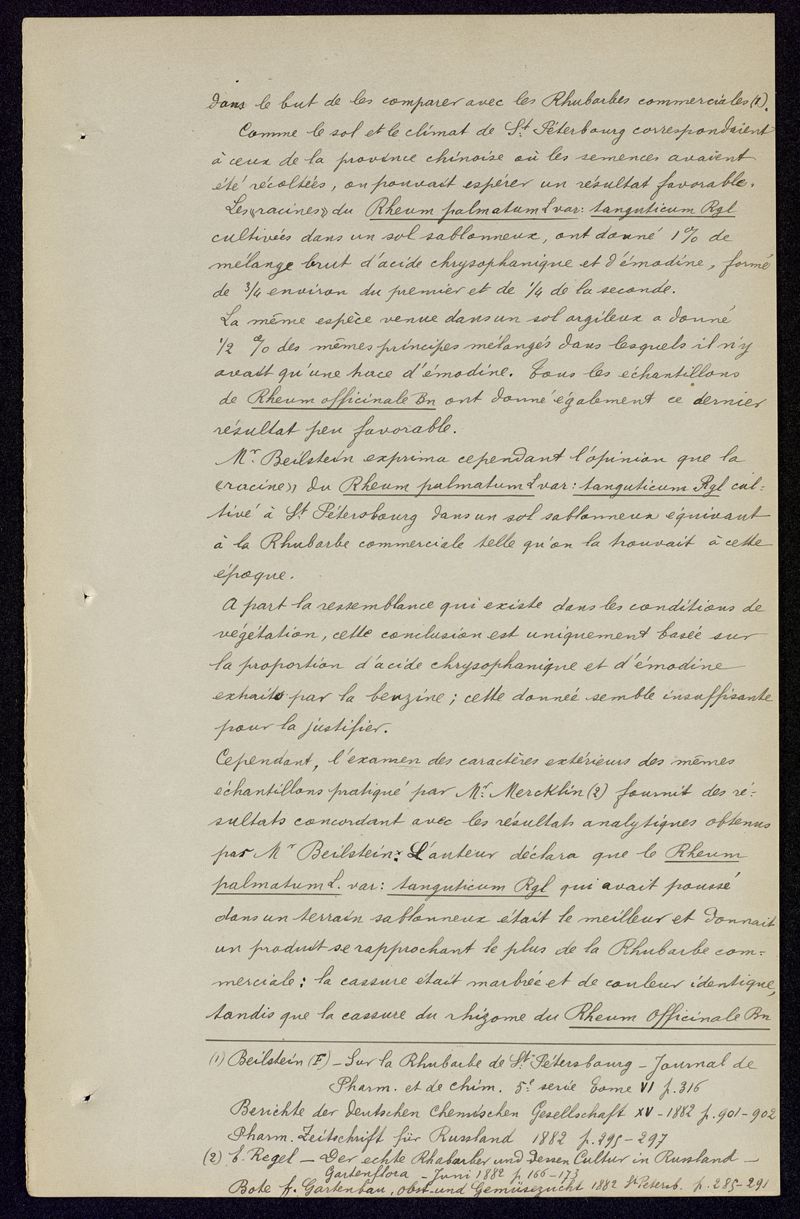 dans le but de les comparer avec les Rhubarbes commerciales (1).
Comme le sol et le climat de St Pétersbourg correspondaient
à ceux de la province chinoise où les semences avaient
été récoltées, on pouvait espérer un résultat favorable.
Les «racines» du Rheum palmatum L var: tanguticum Rgl
cultivées dans un sol sablonneux, ont donné 1% de
mélange brut d'acide chrysophanique et d'émodine, formé
de 3/4 environ du premier et de 1/4 de la seconde.
La même espèce venue dans un sol argileux a donné
1/2 % des mêmes principes mélangés dans lesquels il n'y
avait qu'une trace d'émodine. Tous les échantillons
de Rheum officinale Bn ont donné également ce dernier
résultat peu favorable.
Mr Beilstein exprima cependant l'opinion que la
«racine» du Rheum palmatum L var: tanguticum Rgl cul-
tivé à St Pétersbourg dans un sol sablonneux équivaut
à la Rhubarbe commerciale telle qu'on la trouvait à cette
époque.
A part la ressemblance qui existe dans les conditions de
végétation, cette conclusion est uniquement basée sur
la proportion d'acide chrysophanique et d'émodine
extraits par la benzine; cette donnée semble insuffisante
pour la justifier.
Cependant, l'examen des caractères extérieurs des mêmes
échantillons pratiqué par Mr Mercklin (2) fournit des ré-
sultats concordant avec les résultats analytiques obtenus
par Mr Beilstein: L'auteur déclara que le Rheum
palmatum L. var: tanguticum Rgl qui avait poussé
dans un terrain sablonneux était le meilleur et donnait
un produit se rapprochant le plus de la Rhubarbe com-
merciale: la cassure était marbrée et de couleur identique,
tandis que la cassure du rhizome du Rheum Officinale Bn
(1) Beilstein (F) – Sur la Rhubarbe de St Pétersbourg – Journal de
Pharm. et de chim. 5e serie Tome VI p. 316
Berichte der deutschen chemischen Gesellschaft XV – 1882 p. 901–902
Pharm. Zeitschrift für Russland 1882 p. 295–297
(2) E. Regel – Der echte Rhabarber und dessen Cultur in Russland –
Gartenflora – Juni 1882 p. 166–173
Bote f. Gartenbau, obst-und Gemüsezucht 1882 St Petersb. p. 285–291